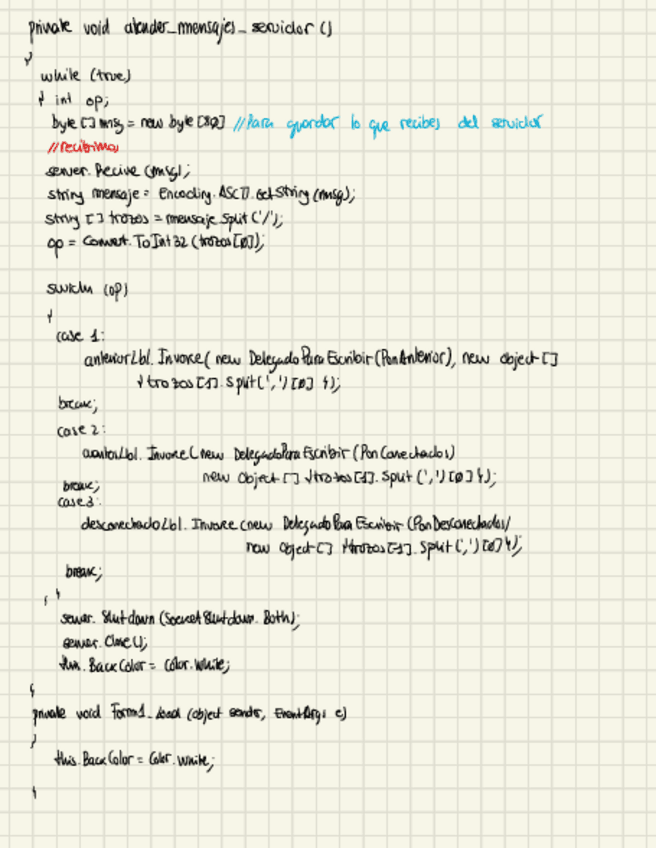 private void atender_mensajes_servidor ()
{
while (true)
{ int op;
byte [] msg = new byte [80] //Para guardar lo que recibes del servidor
//recibimos
server.Recive (msg);
string mensaje = Encoding.ASCII.GetString (msg);
string [] trozos = mensaje.Split('/');
op = Convert.ToInt32 (trozos[0]);
switch (op)
{
case 1:
anteriorLbl.Invoke( new DelegadoParaEscribir (PonAnterior), new object []
{trozos[1].Split(',')[0] });
break;
case 2:
.Invoke (new DelegadoParaEscribir (PonConectados)
new Object [] {trozos[1].Split(',')[0] });
break;
case 3:
desconectadoLbl.Invoke (new DelegadoParaEscribir (PonDesconectados)
new Object [] {trozos[1].Split(',')[0] });
break;
} }
server.Shutdown (SocketShutdown.Both);
server.Close();
this.BackColor = Color.White;
}
private void Form1_Load (object sender, EventArgs e)
{
this.BackColor = Color.White;
}